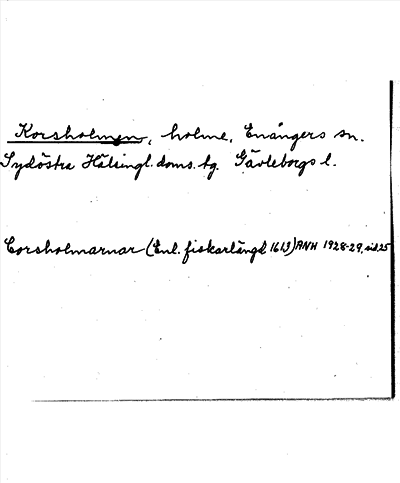 Korsholmen, holme, Enångers sn.
Sydöstra Hälsingl. doms. tg. Gävleborgs l.
Corsholmarnar (Enl. fiskarlängd 1613) ANH 1928-29, sid. 25